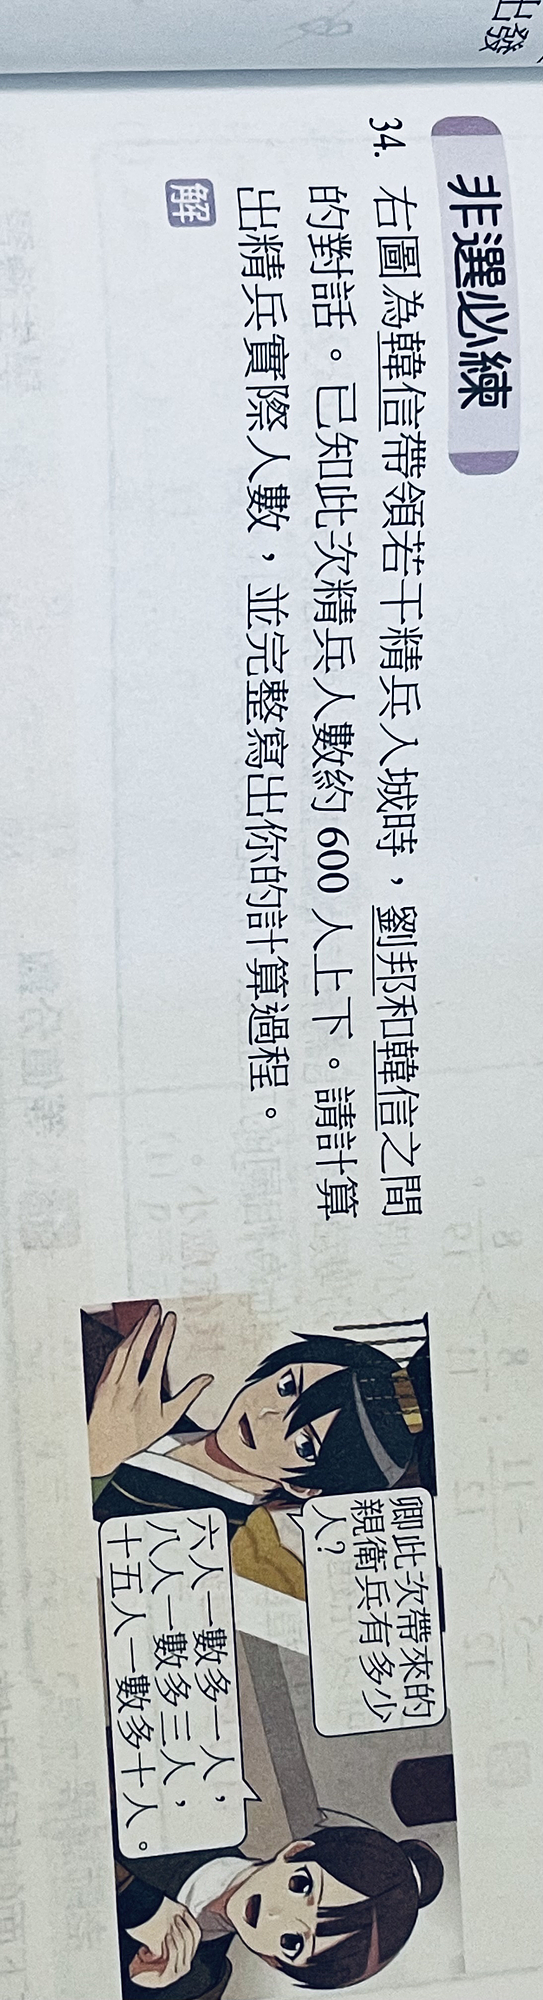 出發
非選必練
34. 右圖為韓信帶領若干精兵入城時，劉邦和韓信之間
的對話。已知此次精兵人數約 600 人上下。請計算
出精兵實際人數，並完整寫出你的計算過程。
解
卿此次帶來的
親衛兵有多少
人？
六人一數多一人，
八人一數多三人，
十五人一數多十人。